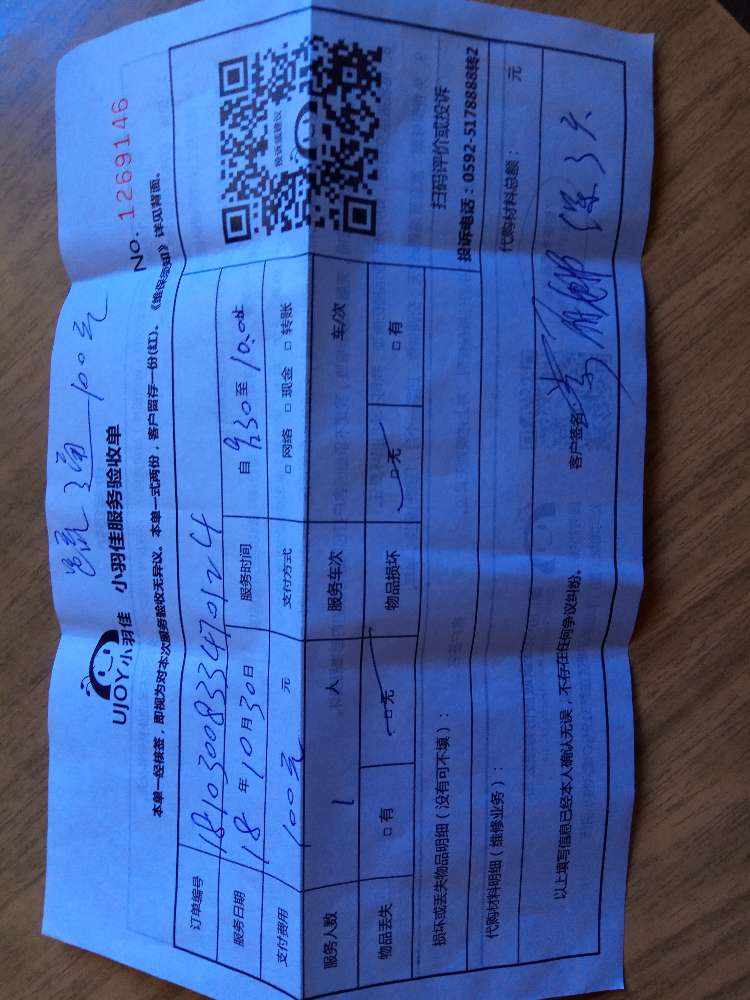 3通 100元
UJOY小羽佳 小羽佳服务验收单
No. 1269146
本单一经核签，即视为对本次服务验收无异议。本单一式两份，客户留存一份(红)。《维保须知》详见背面。
订单编号 1810300833470124
服务日期 18 年 10 月 30 日 服务时间 自 9:30 至 10:00
支付费用 100元 元 支付方式 □ 网络 □ 现金 □ 转账
服务人数 1 人 服务车次 车/次
物品丢失 □ 有 □ 无 物品损坏 □ 无 □ 有
投诉或建议
扫码评价或投诉
投诉电话：0592-5178888转2
损坏或丢失物品明细（没有可不填）：
代购材料明细（维修业务）： 代购材料总额： 元
以上填写信息已经本人确认无误，不存在任何争议纠纷。 客户签名
保3天